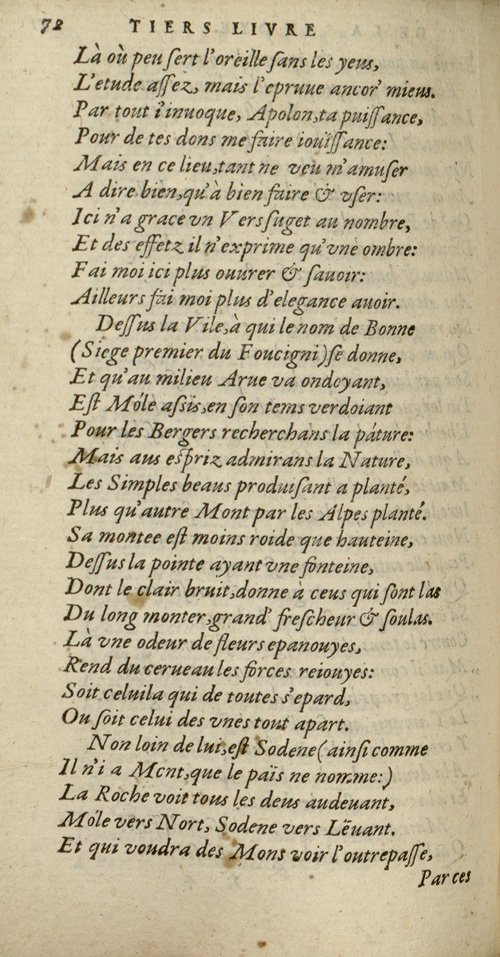 72 TIERS LIVRE
Là où peu ſert l'oreille ſans les yeus,
L'etude aſſez, mais l'epruue ancor' mieus.
Par tout i'inuoque, Apolon, ta puiſſance,
Pour de tes dons me faire iouïſſance:
Mais en ce lieu, tant ne veu m'amuſer
A dire bien, qu'à bien faire & vſer:
Ici n'a grace vn Vers ſuget au nombre,
Et des effetz il n'exprime qu'vne ombre:
Fai moi ici plus ouurer & ſauoir:
Ailleurs fai moi plus d'elegance auoir.
Deſſus la Vile, à qui le nom de Bonne
(Siege premier du Foucigni) ſe donne,
Et qu'au milieu Arue va ondoyant,
Eſt Móle aſsis, en ſon tems verdoiant
Pour les Bergers recherchans la páture:
Mais aus eſpriz admirans la Nature,
Les Simples beaus produiſant a planté,
Plus qu'autre Mont par les Alpes planté.
Sa montee eſt moins roide que hauteine,
Deſſus la pointe ayant vne fonteine,
Dont le clair bruit, donne à ceus qui ſont las
Du long monter, grand' freſcheur & ſoulas.
Là vne odeur de fleurs epanouyes,
Rend du cerueau les forces reiouyes:
Soit celuila qui de toutes s'epard,
Ou ſoit celui des vnes tout apart.
Non loin de lui, eſt Sodene (ainſi comme
Il n'i a Mont, que le païs ne nomme:)
La Roche voit tous les deus audeuant,
Móle vers Nort, Sodene vers Lëuant.
Et qui voudra des Mons voir l'outrepaſſe,
Par ces